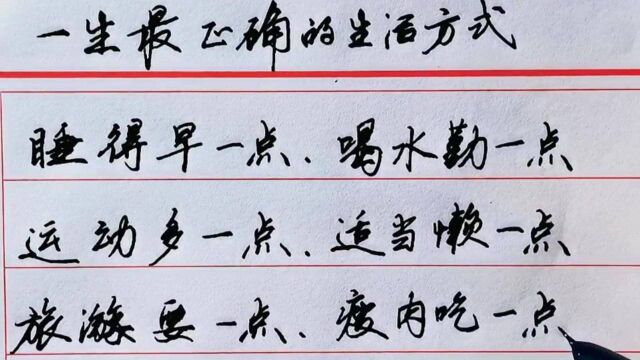 一生最正确的生活方式
睡得早一点、喝水勤一点
运动多一点、适当懒一点
旅游要一点、瘦肉吃一点